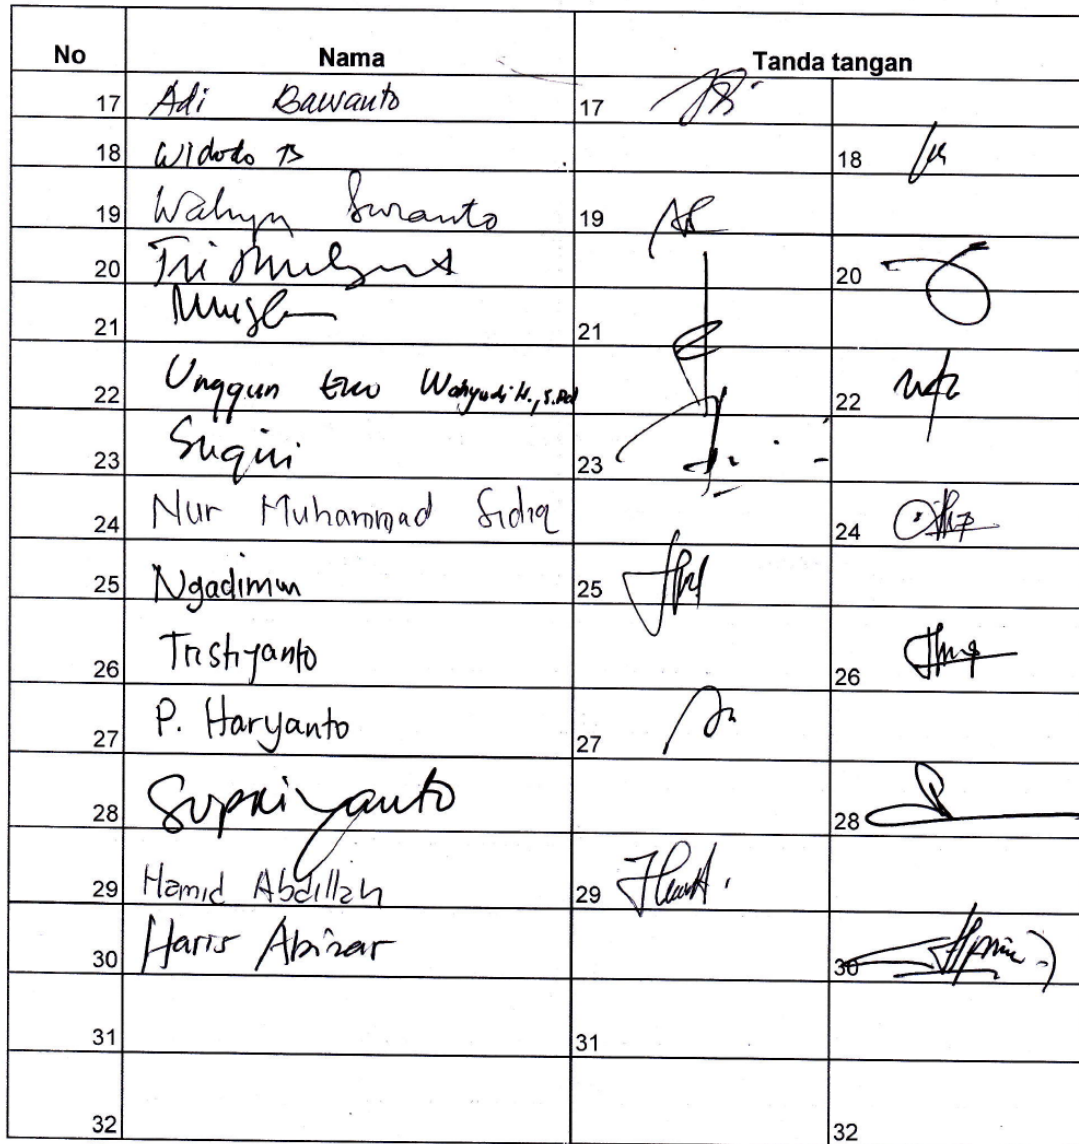 No Nama Tanda tangan
17 Adi Bawanto 17
18 Widodo TS 18
19 Wahyu Suranto 19
20 Tri 20
21 21
22 Unggun Eko Wahyudi H., S.Pd 22
23 Sugiri 23
24 Nur Muhammad Sidiq 24
25 Ngadimun 25
26 Tristiyanto 26
27 P. Haryanto 27
28 Supriyanto 28
29 Hamid Abdillah 29
30 Haris Abizar 30
31 31
32 32